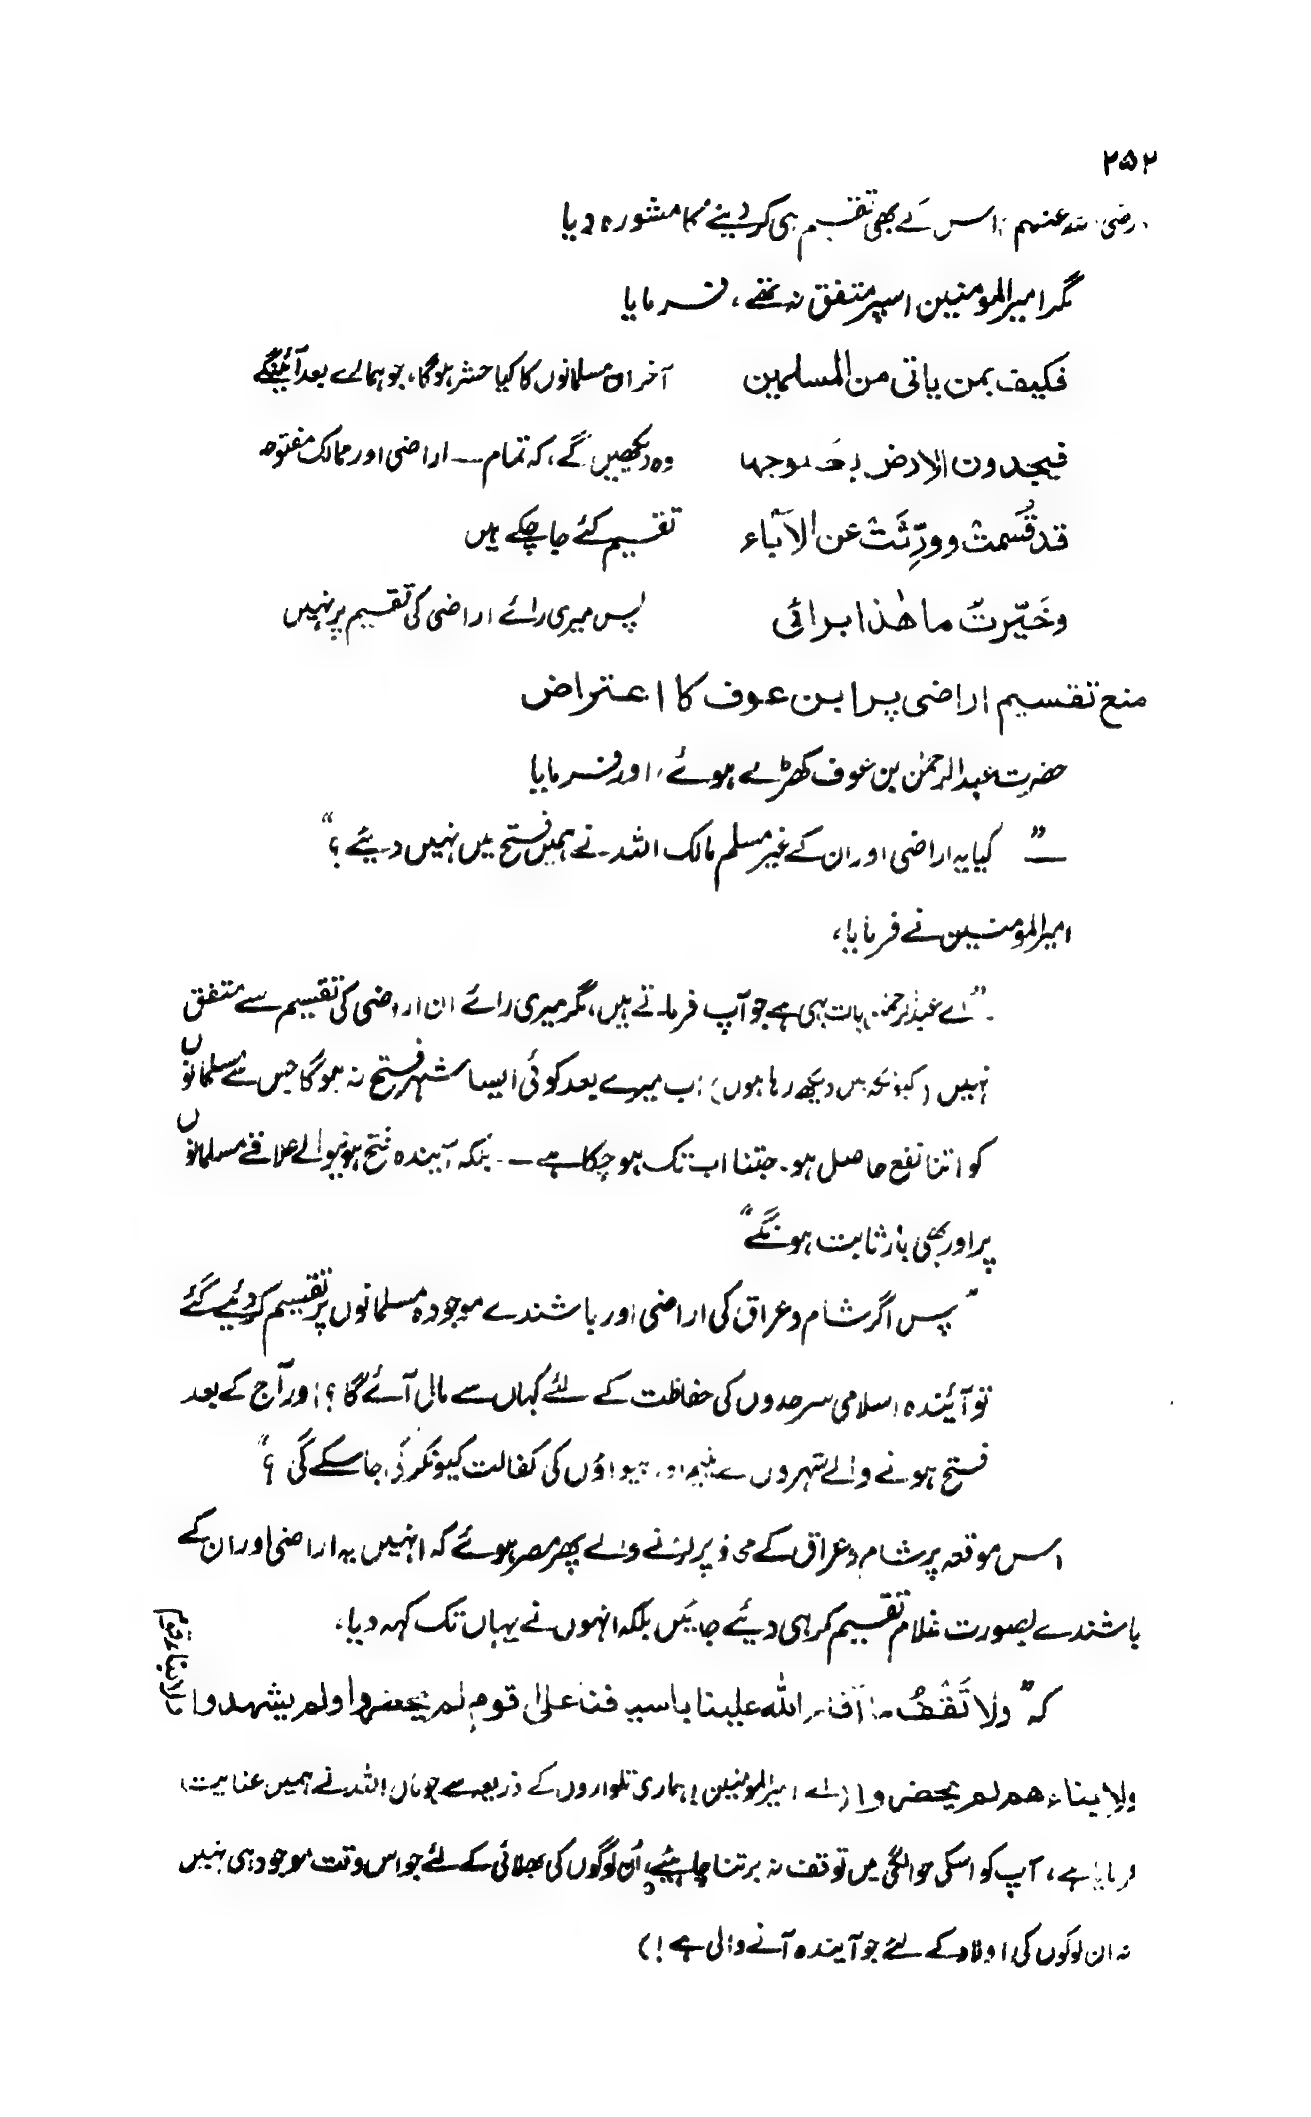 ۲۵۲
رضی اللہ عنہم) اس کے بھی تقسیم ہی کر دینے کا مشورہ دیا
مگر امیر المومنین اسپر متفق نہ تھے، فرمایا
فکیف بمن یاتی من المسلمین آخر ان مسلمانوں کا کیا حشر ہوگا، جو ہمارے بعد آئینگے
فیجدون الارض بعلوجہا وہ دیکھیں گے، کہ تمام — اراضی اور ممالک مفتوحہ
قد قُسمتْ وورِّثَتْ عن الآباء تقسیم کئے جاچکے ہیں
وخَیّرتْ ما ھٰذا برائی پس میری رائے اراضی کی تقسیم پر نہیں
منع تقسیم اراضی پر ابن عوف کا اعتراض
حضرت عبدالرحمٰن بن عوف کھڑے ہوئے، اور فرمایا
— ” کیا یہ اراضی اور ان کے غیر مسلم مالک اللہ نے ہمیں فتح میں نہیں دیئے ؟“
امیر المومنین نے فرمایا،
”اے عبدالرحمٰن! بات یہی ہے جو آپ فرماتے ہیں، مگر میری رائے ان اراضی کی تقسیم سے متفق
نہیں (کیونکہ میں دیکھ رہا ہوں) اب میرے بعد کوئی ایسا شہر فتح نہ ہوگا جس سے مسلمانوں
کو اتنا نفع حاصل ہو۔ جتنا اب تک ہوچکا ہے —- بلکہ آیندہ فتح ہونیوالے علاقے مسلمانوں
پر اور بھی بار ثابت ہونگے“
” پس اگر شام و عراق کی اراضی اور باشندے موجودہ مسلمانوں پر تقسیم کردیئے گئے
تو آئیندہ اسلامی سرحدوں کی حفاظت کے لئے کہاں سے مال آئے گا ؟ اور آج کے بعد
فتح ہونے والے شہروں کے یتیم اور بیواؤں کی کفالت کیونکر کی جاسکے گی ؟“
اس موقعہ پر شام و عراق کے محاذ پر لڑنے والے پھر مصر ہوئے کہ انہیں یہ اراضی اور ان کے
باشندے بصورت غلام تقسیم کر ہی دیئے جائیں بلکہ انہوں نے یہاں تک کہہ دیا،
کہ” ولا تَقْفُ ما آفاء اللہ علینا باسیافنا علیٰ قومٍ لم یحضروا ولم یشھدوا ولابناء قوم
ولابناءھم لم یحضروا (اے امیر المومنین! ہماری تلواروں کے ذریعہ سے جو مال اللہ نے ہمیں عنایت
فرمایا ہے، آپ کو اسکی حوالگی میں توقف نہ برتنا چاہئیے، اُن لوگوں کی بھلائی کے لئے جو اس وقت موجود ہی نہیں
نہ ان لوگوں کی اولاد کے لئے جو آیندہ آنے والی ہے !)